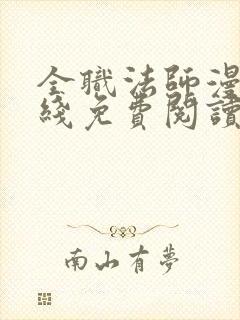 全職法師漫
綫免費閱讀
南山有夢